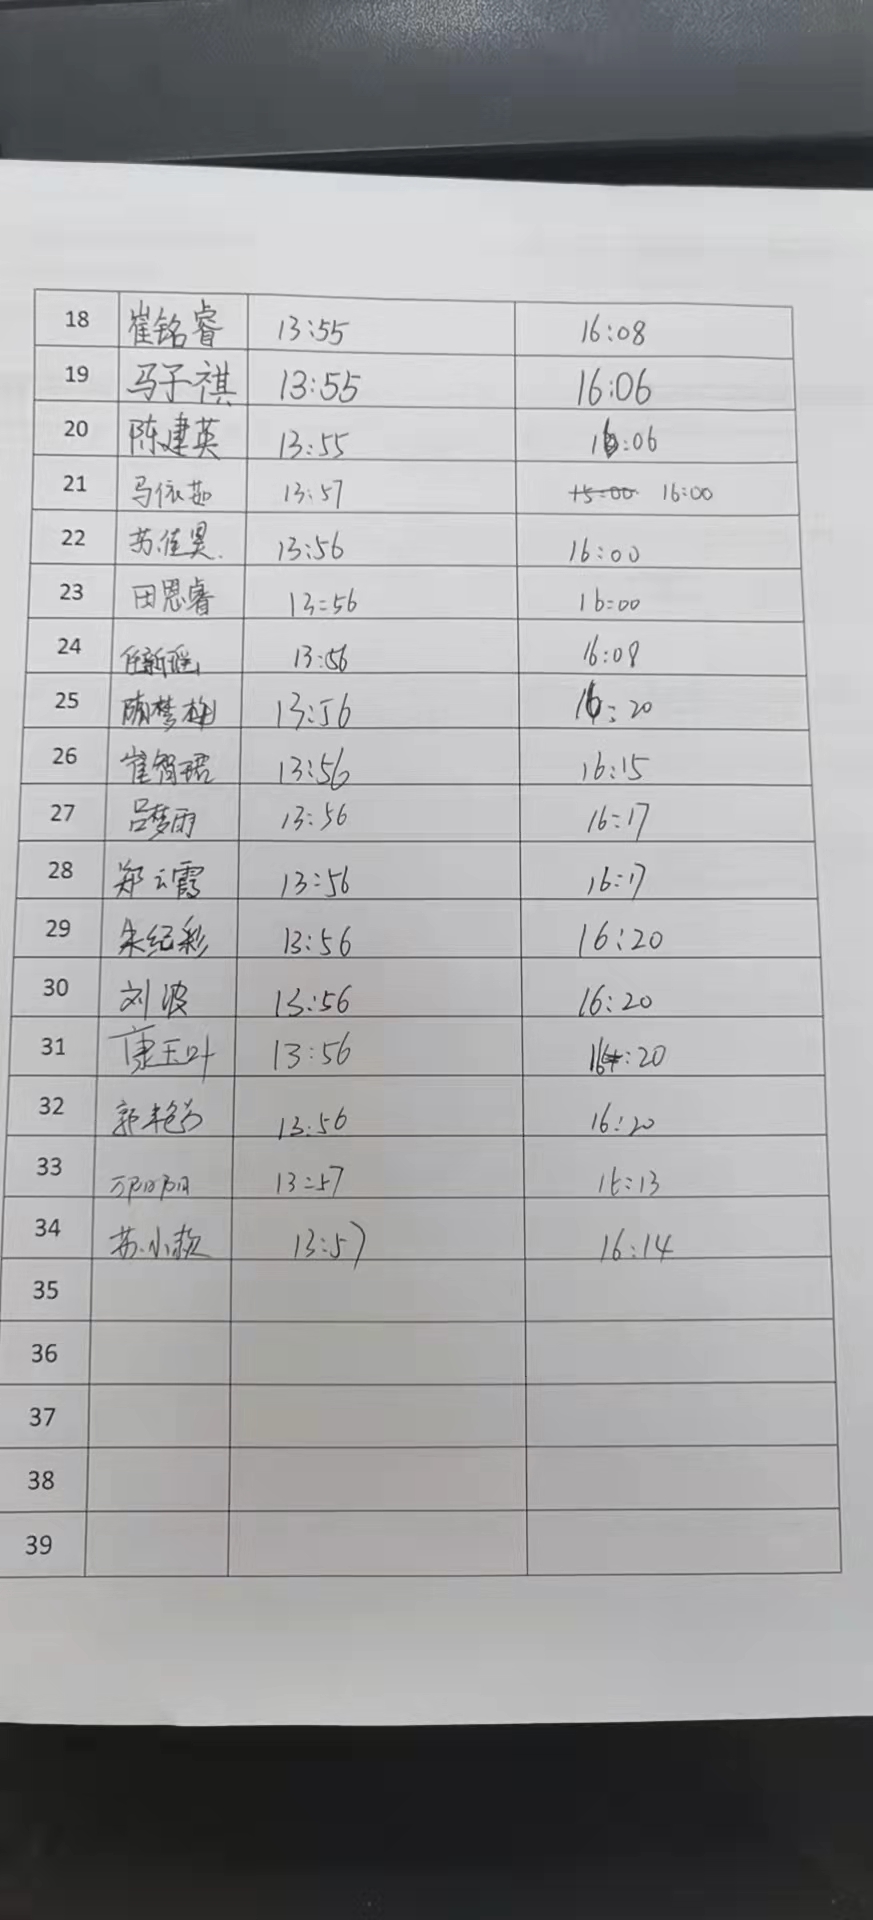 18 崔铭睿 13:55 16:08
19 马子祺 13:55 16:06
20 陈建英 13:55 16:06
21 马依茹 13:57 15:00 16:00
22 苏佳昊. 13:56 16:00
23 田恩睿 13:56 16:00
24 任新瑶 13:56 16:08
25 隋梦梅 13:56 16:20
26 崔智珺 13:56 16:15
27 吕梦雨 13:56 16:17
28 郑云霞 13:56 16:17
29 朱纪彩 13:56 16:20
30 刘波 13:56 16:20
31 康玉叶 13:56 16:20
32 郭艳芳 13:56 16:20
33 13:57 16:13
34 苏小颖 13:57 16:14
35
36
37
38
39